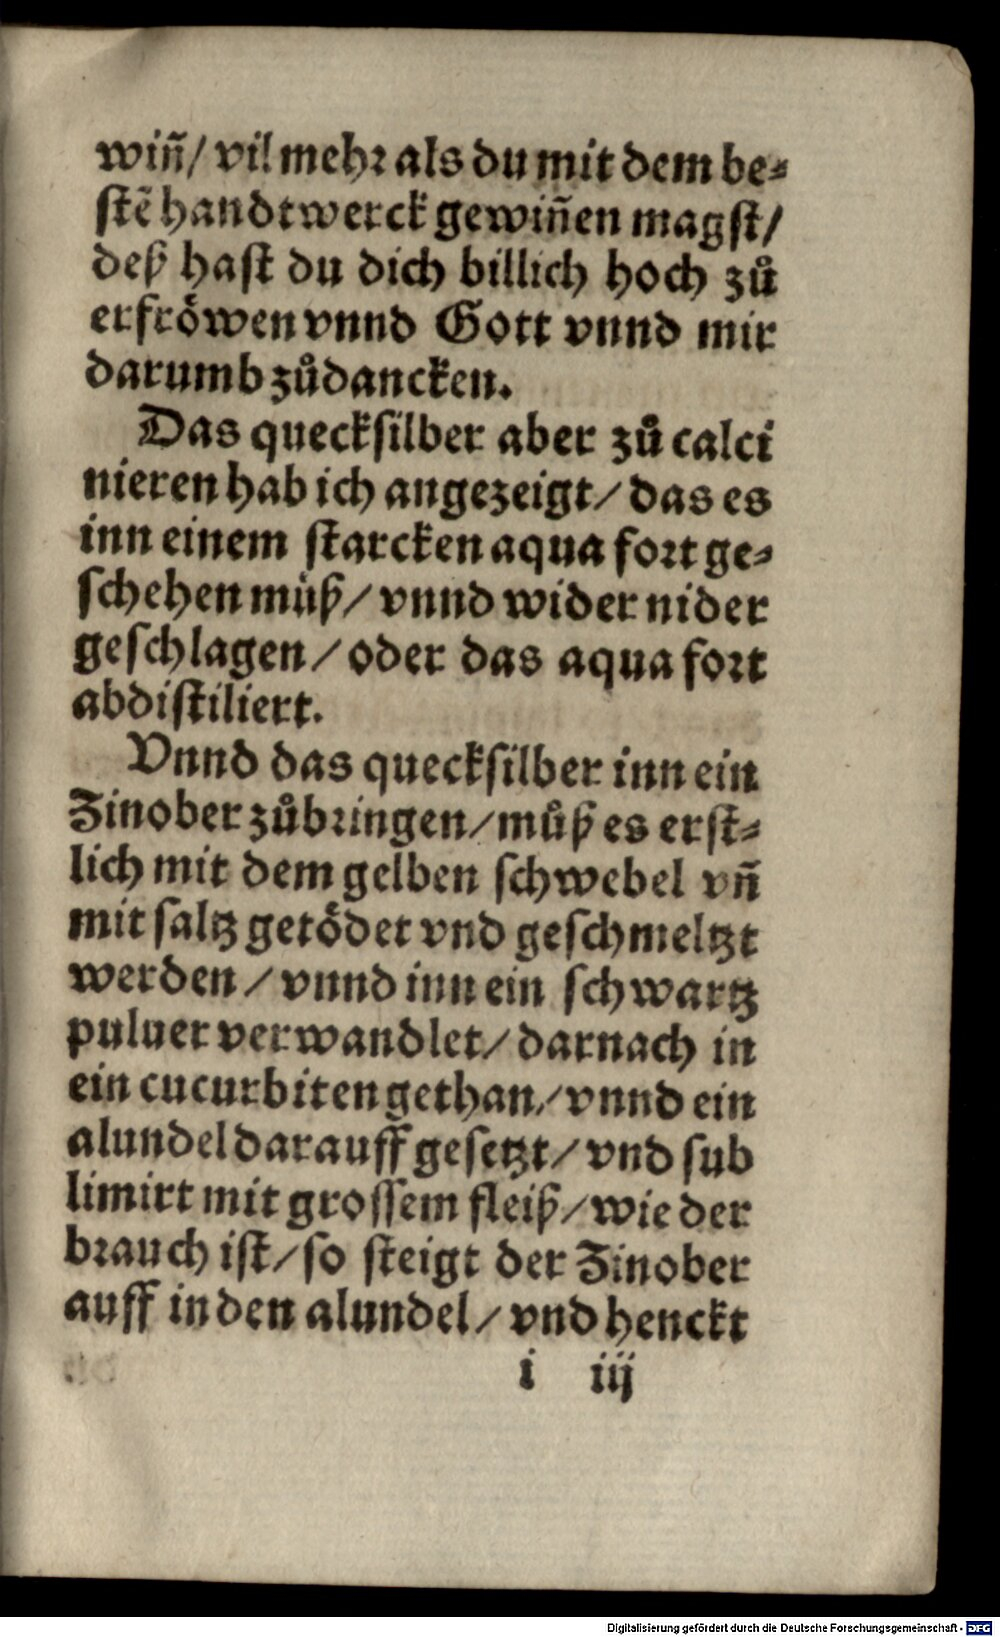 wiñ/ vil mehr als du mit dem be⸗
stẽ handtwerck gewiñen magst/
deß hast du dich billich hoch zů
erfröwen vnnd Gott vnnd mir
darumb zůdancken.
Das quecksilber aber zů calci
nieren hab ich angezeigt/ das es
inn einem starcken aqua fort ge⸗
schehen můß/ vnnd wider nider
geschlagen/ oder das aqua fort
abdistiliert.
Vnnd das quecksilber inn ein
Zinober zůbringen/ můß es erst⸗
lich mit dem gelben schwebel vñ
mit saltz getödet vnd geschmeltzt
werden/ vnnd inn ein schwartz
puluer verwandlet/ darnach in
ein cucurbiten gethan/ vnnd ein
alundel darauff gesetzt/ vnd sub
limirt mit grossem fleiß/ wie der
brauch ist/ so steigt der Zinober
auff in den alundel/ vnd henckt
i iij
Digitalisierung gefördert durch die Deutsche Forschungsgemeinschaft - DFG